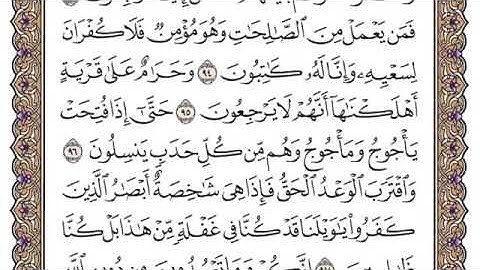 فَمَن يَعْمَلْ مِنَ ٱلصَّٰلِحَٰتِ وَهُوَ مُؤْمِنٌ فَلَا كُفْرَانَ
لِسَعْيِهِۦ وَإِنَّا لَهُۥ كَٰتِبُونَ ٩٤ وَحَرَٰمٌ عَلَىٰ قَرْيَةٍ
أَهْلَكْنَٰهَآ أَنَّهُمْ لَا يَرْجِعُونَ ٩٥ حَتَّىٰٓ إِذَا فُتِحَتْ
يَأْجُوجُ وَمَأْجُوجُ وَهُم مِّن كُلِّ حَدَبٍ يَنسِلُونَ ٩٦
وَٱقْتَرَبَ ٱلْوَعْدُ ٱلْحَقُّ فَإِذَا هِىَ شَٰخِصَةٌ أَبْصَٰرُ ٱلَّذِينَ
كَفَرُوا۟ يَٰوَيْلَنَا قَدْ كُنَّا فِى غَفْلَةٍ مِّنْ هَٰذَا بَلْ كُنَّا